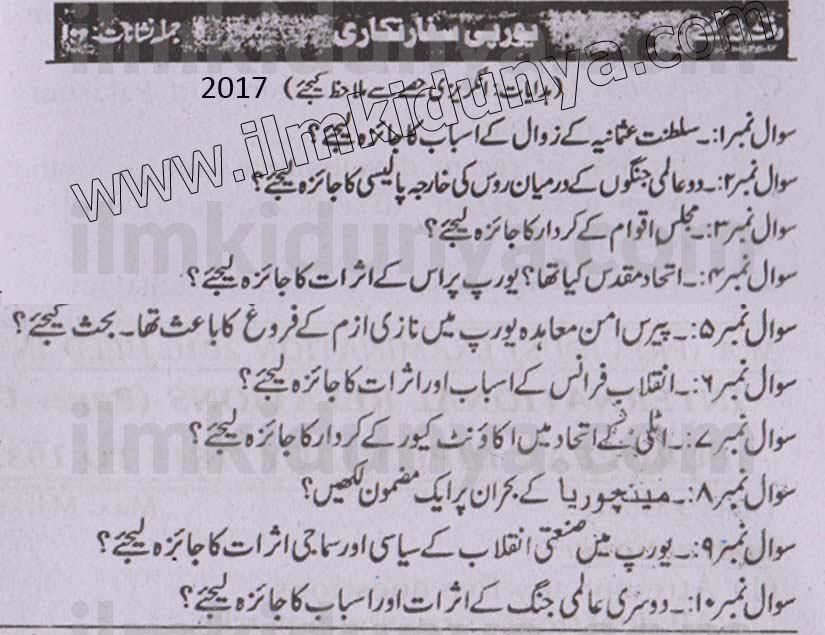 یورپی سفارتکاری جملہ نشانات: ۱۰۰
2017 (ہدایات: انگریزی حصے سے ملاحظہ کیجئے)
سوال نمبر۱:۔ سلطنت عثمانیہ کے زوال کے اسباب کا جائزہ لیجئے؟
سوال نمبر۲:۔ دو عالمی جنگوں کے درمیان روس کی خارجہ پالیسی کا جائزہ لیجئے؟
سوال نمبر۳:۔ مجلس اقوام کے کردار کا جائزہ لیجئے؟
سوال نمبر۴:۔ اتحاد مقدس کیا تھا؟ یورپ پر اس کے اثرات کا جائزہ لیجئے؟
سوال نمبر۵:۔ پیرس امن معاہدہ یورپ میں نازی ازم کے فروغ کا باعث تھا۔ بحث کیجئے؟
سوال نمبر۶:۔ انقلاب فرانس کے اسباب اور اثرات کا جائزہ لیجئے؟
سوال نمبر۷:۔ اٹلی کے اتحاد میں اکاؤنٹ کیور کے کردار کا جائزہ لیجئے؟
سوال نمبر۸:۔ مینچوریا کے بحران پر ایک مضمون لکھیں؟
سوال نمبر۹:۔ یورپ میں صنعتی انقلاب کے سیاسی اور سماجی اثرات کا جائزہ لیجئے؟
سوال نمبر۱۰:۔ دوسری عالمی جنگ کے اثرات اور اسباب کا جائزہ لیجئے؟
www.ilmkidunya.com
ilmkidunya.com
ilmkidunya.com